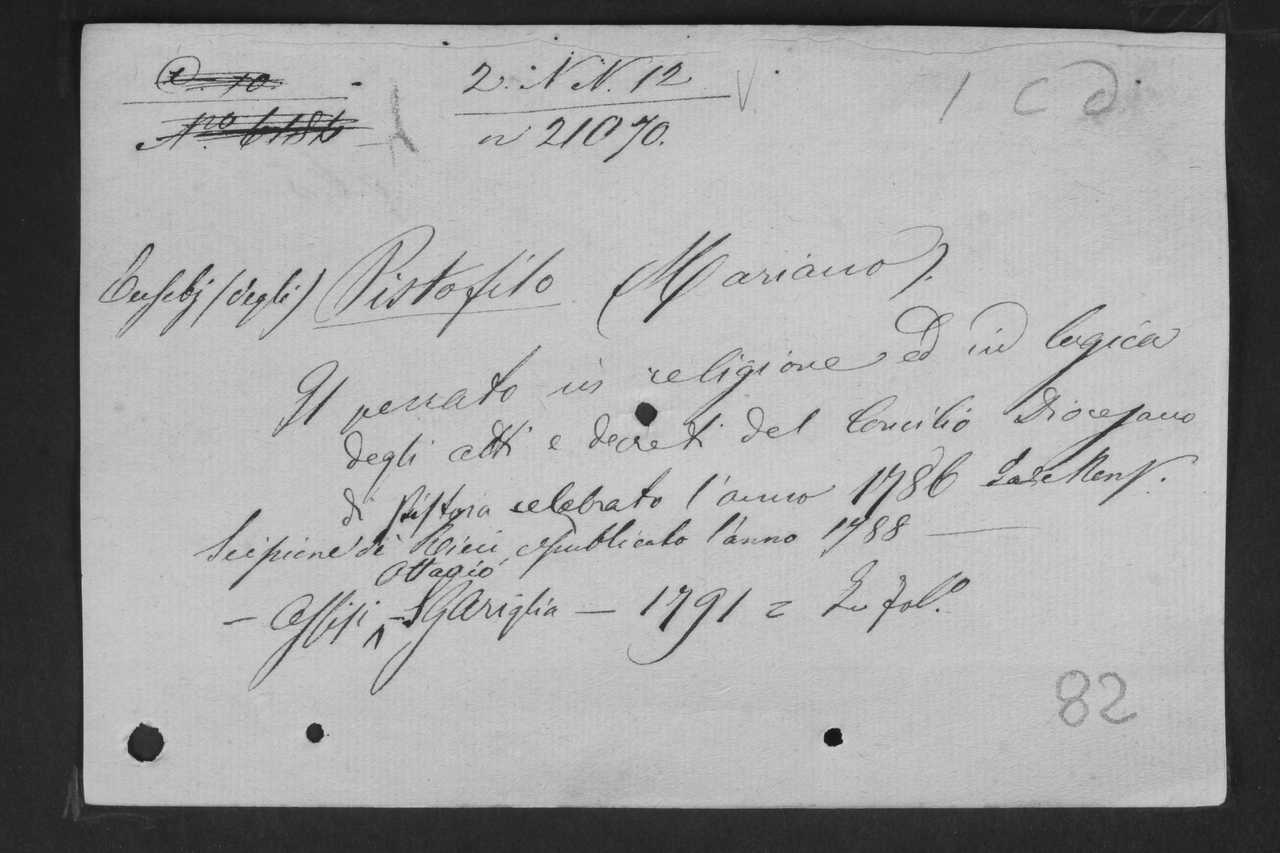 D. 10. 2. N N. 12 1 C d
Nro 6182 n 21070.
Eusebj (degli) Pistofilo (Mariano).
Il peccato in religione ed in logica
degli atti e decreti del Concilio Diocesano
di Pistoia celebrato l'anno 1786
Scipione de Ricci, e pubblicato l'anno 1788 —
Ottavio
— Assisi — Sgariglia — 1791 = In fol.°
82